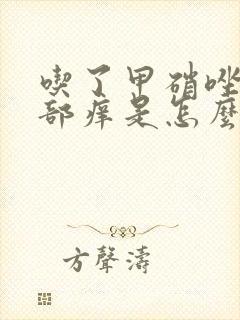 喫了甲硝唑
部痒是怎麼
方聲濤